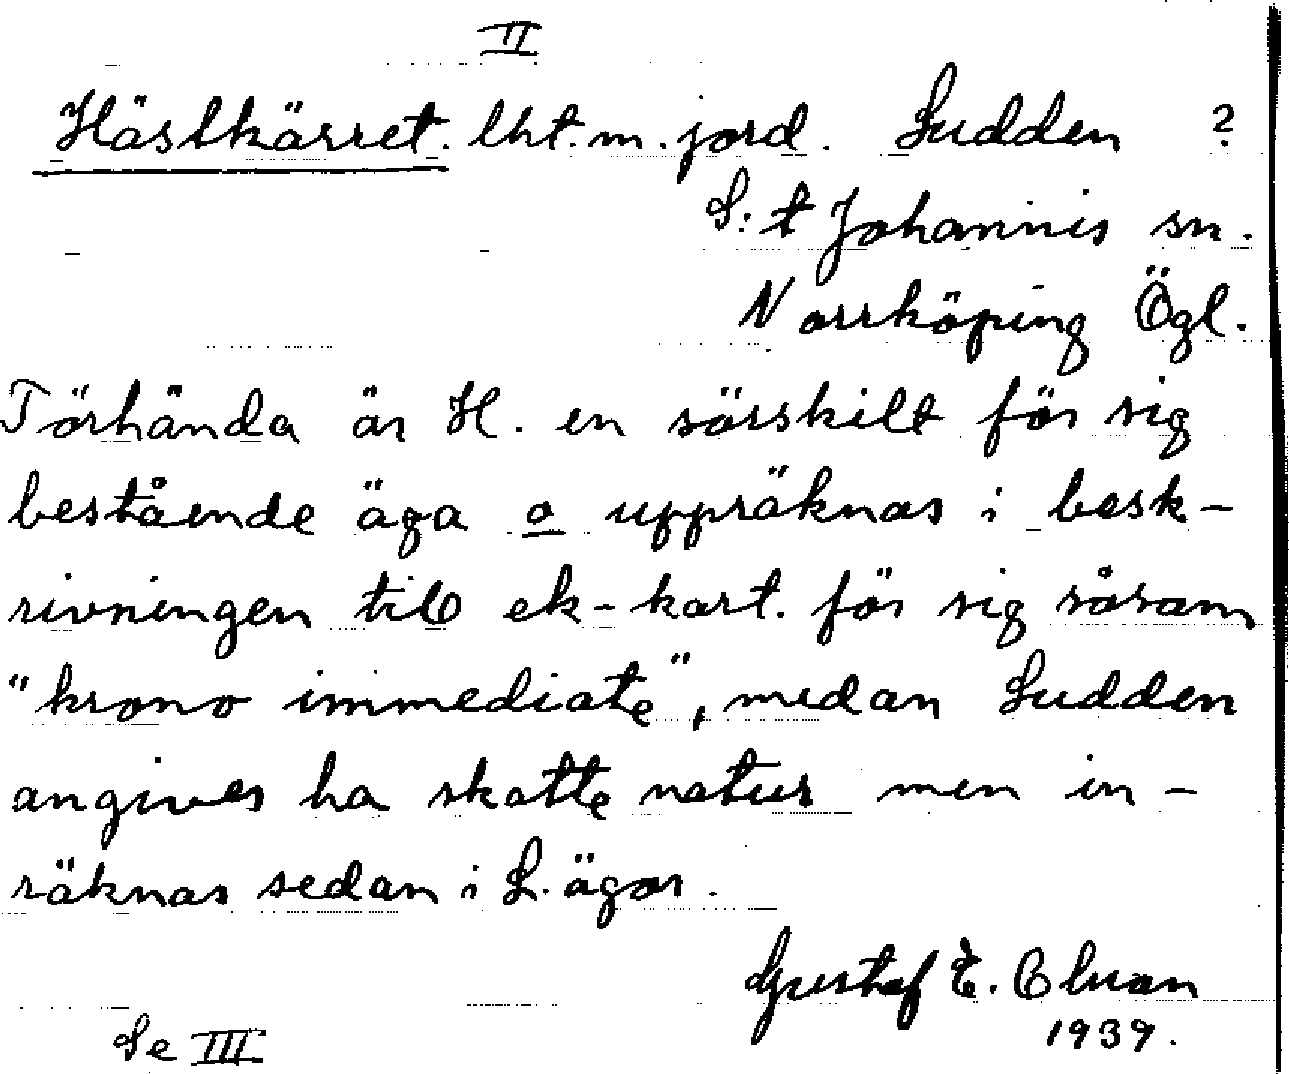 II
Hästkärret. lht. m. jord. Sudden ?
S:t Johannis sn.
Norrköping Ögl.
Törhända är H. en särskilt för sig
bestående äga o uppräknas i besk-
rivningen till ek-kart. för sig såsom
"krono immediate", medan Sudden
angives ha skatte natur men in-
räknas sedan i S. ägor.
Gustaf E.
1939.
Se III